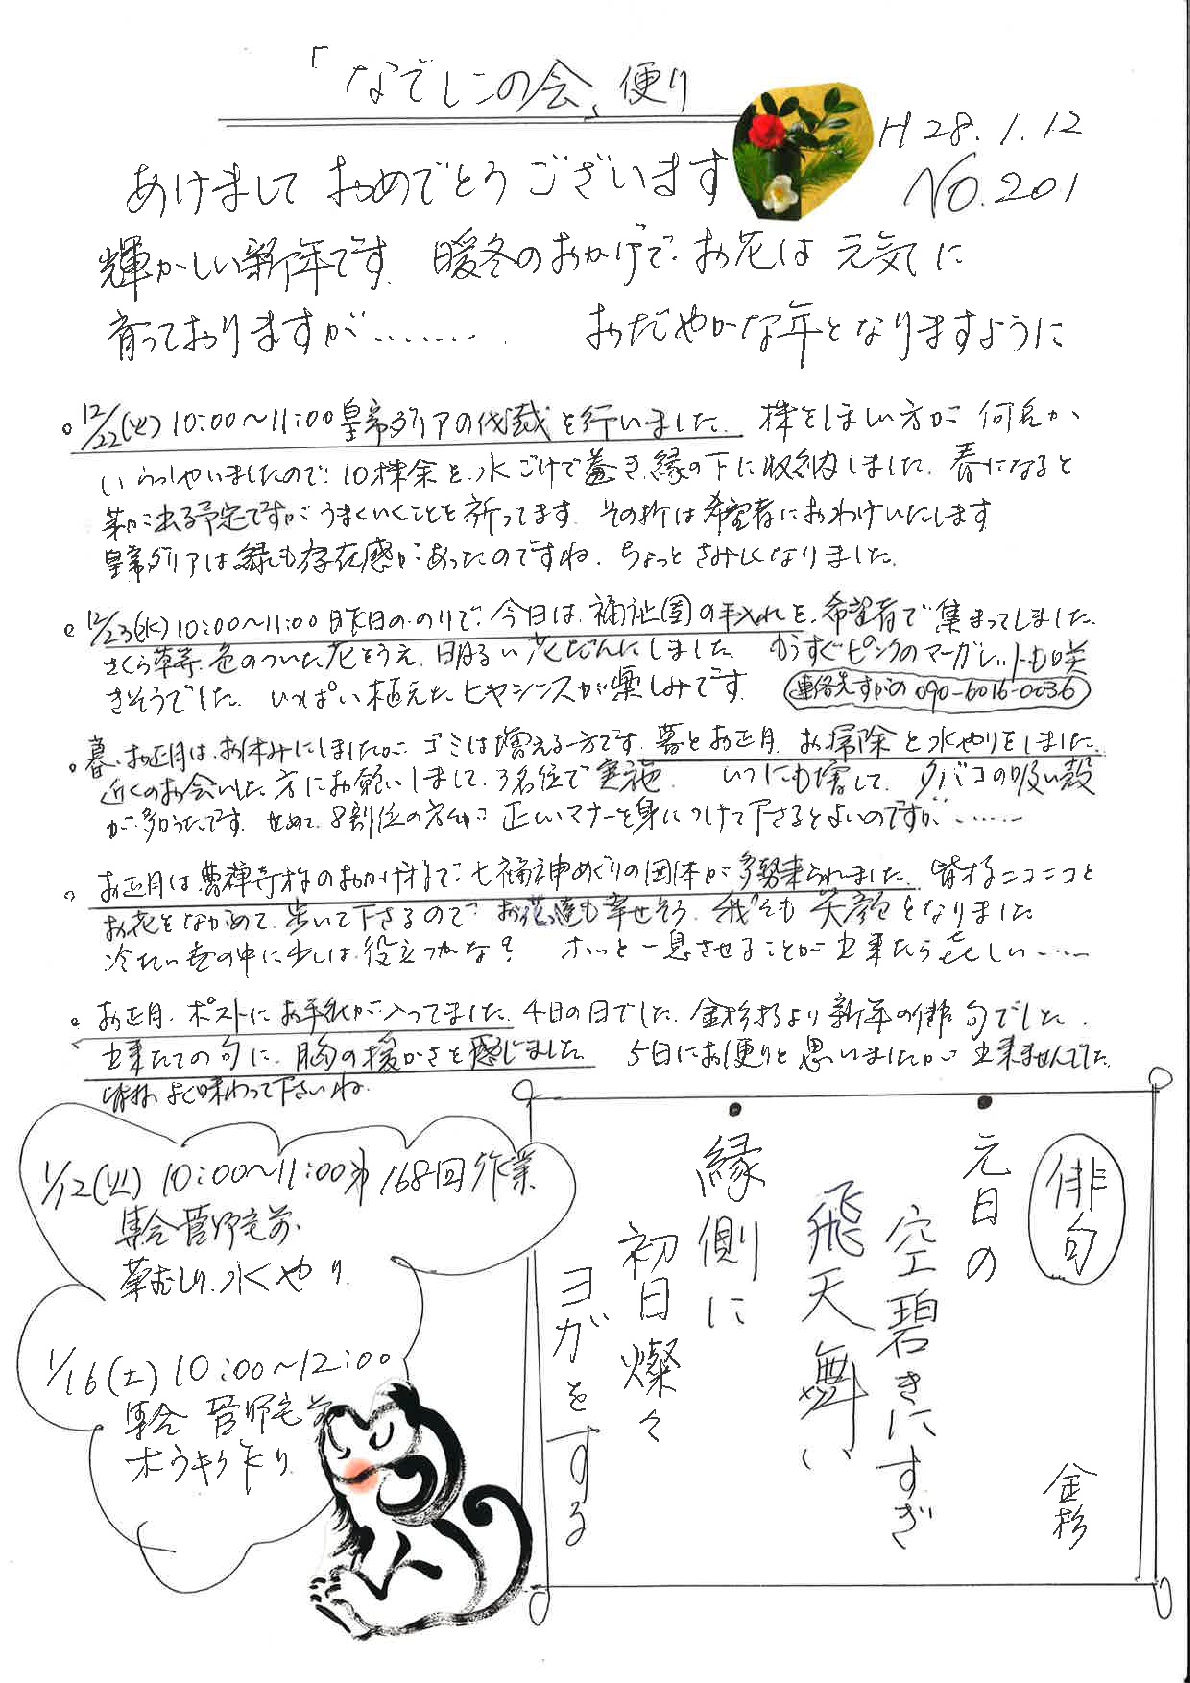 「なでしこの会」便り
H28.1.12
No.201
あけまして おめでとうございます
輝かしい新年です. 暖冬のおかげで. お花は 元気に
育っておりますが........ おだやかな年となりますように
。12/22(火) 10:00〜11:00 皇帝ダリアの伐裁を行いました. 株をほしい方が 何名か
いらっしゃいましたので. 10株余を. 水ごけで蓋き. 縁の下に収納しました. 春になると
芽が出る予定ですが うまくいくことを祈ってます. その折は希望者におわけいたします
皇帝ダリアは 存在感があったのですね. ちょっと さみしくなりました.
。12/23(水) 10:00〜11:00 昨日ののりで. 今日は. 福祉園の手入れを. 希望者で 集まってしました.
さくら草等. 色のついた花をうえ. 明るい花だんにしました. もうすぐピンクのマーガレットも咲
きそうでした. いっぱい植えたヒヤシンスが楽しみです.
連絡先すがの 090-6016-0036
。暮. お正月は. お休みにしましたが. ゴミは増える一方です. 暮とお正月. お掃除と水やりをしました.
近くのお会いした方にお願いしまして. 3名位で実施. いつにも増して. タバコの吸い殻
が多かったです. せめて. 8割位の方が 正しいマナーを身につけて下さるとよいのですが.......
。お正月は 禅寺様のおかげ様で. 七福神めぐりの団体が多勢来られました. 皆様ニコニコと
お花をながめて. 歩いて下さるので お花達も幸せそう. 私共も 笑顔となりました
冷たい 中に 少しは. 役立つかな? ホッと一息させることが出来たら 嬉しい.....
。お正月. ポストにお手紙が入ってました. 4日の日でした. 金杉様より新年の俳句でした.
出来たての句に. 胸の援かさを感じました. 5日にお便りと思いましたが 出来ませんでした.
皆様. よく味わって下さいね.
1/12(火) 10:00〜11:00 第168回作業
集合 菅野宅前
草むしり. 水やり
1/16(土) 10:00〜12:00
集合 菅野宅前
ホウキ作り
俳句
金杉
・元日の
空碧きにすぎ
飛天舞い
・縁側に
初日燦々
ヨガをする